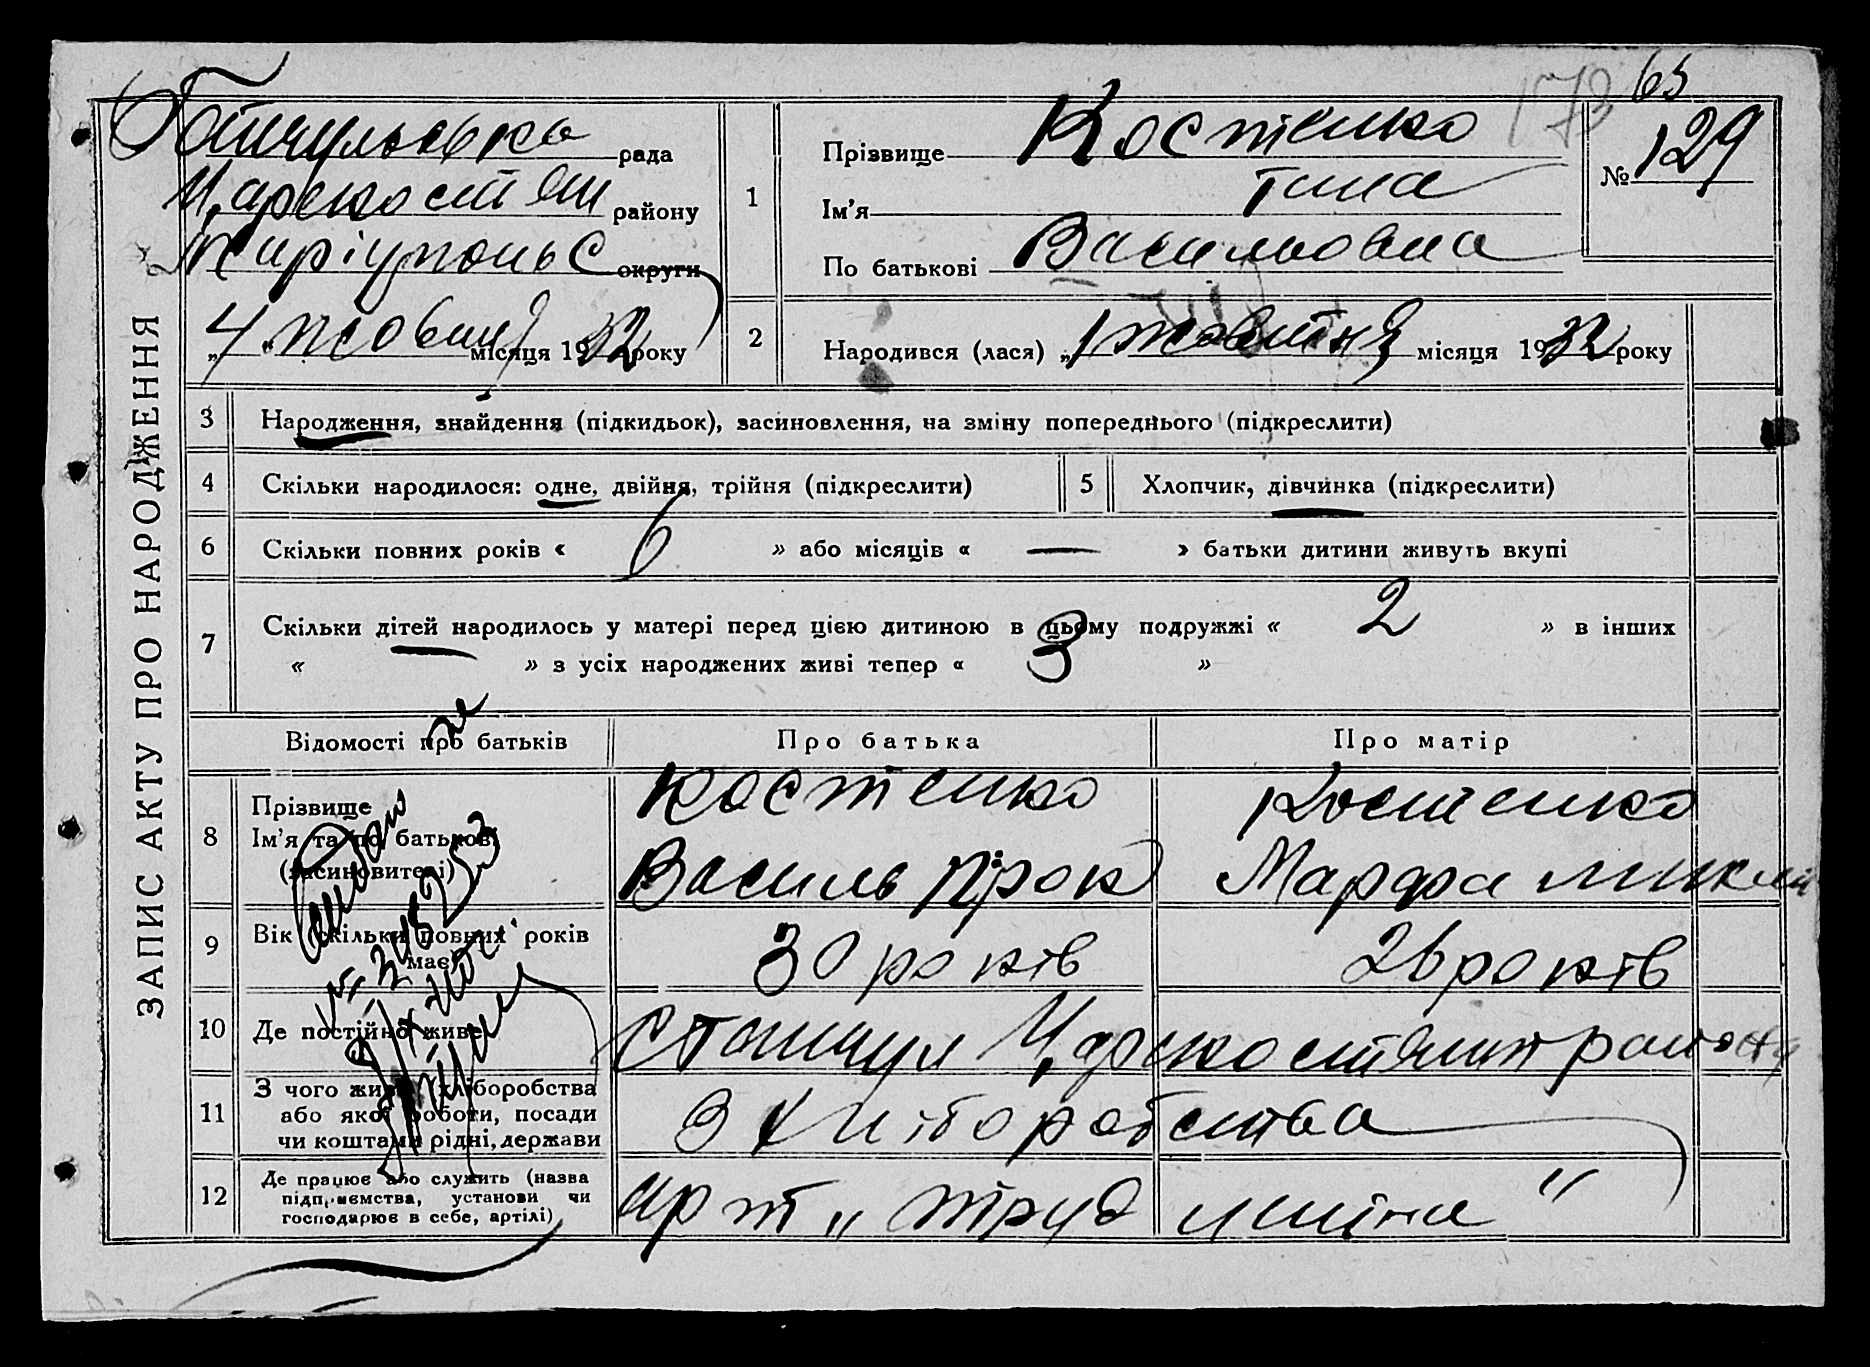 173 65
рада
району
Маріупольс округи
"4" жовтня місяця 1932 року
1
Прізвище Костенко
Ім'я Тина
По батькові Васильовна
№ 129
2
Народився (лася) "1 жовтня місяця 1932 року
ЗАПИС АКТУ ПРО НАРОДЖЕННЯ
3 Народження, знайдення (підкидьок), засиновлення, на зміну попереднього (підкреслити)
4 Скільки народилося: одне, двійня, трійня (підкреслити)
5 Хлопчик, дівчинка (підкреслити)
6 Скільки повних років « 6 » або місяців « — » батьки дитини живуть вкупі
7 Скільки дітей народилось у матері перед цією дитиною в цьому подружжі « 2 » в інших
« » з усіх народжених живі тепер « 3 »
Відомості про батьків
Про батька
Про матір
8 Прізвище
Ім'я та по батькові
(засиновителі)
Костенко
Василь Прок
Костенко
Марфа Микит
9 Вік (скільки повних років
має)
30 років
26 років
10 Де постійно живе
11 З чого живе (хліборобства
або якої роботи, посади
чи коштами рідні, держави
З хліборобства
12 Де працює або служить (назва
підприємства, установи чи
господарює в себе, артілі)
арт „ труд "